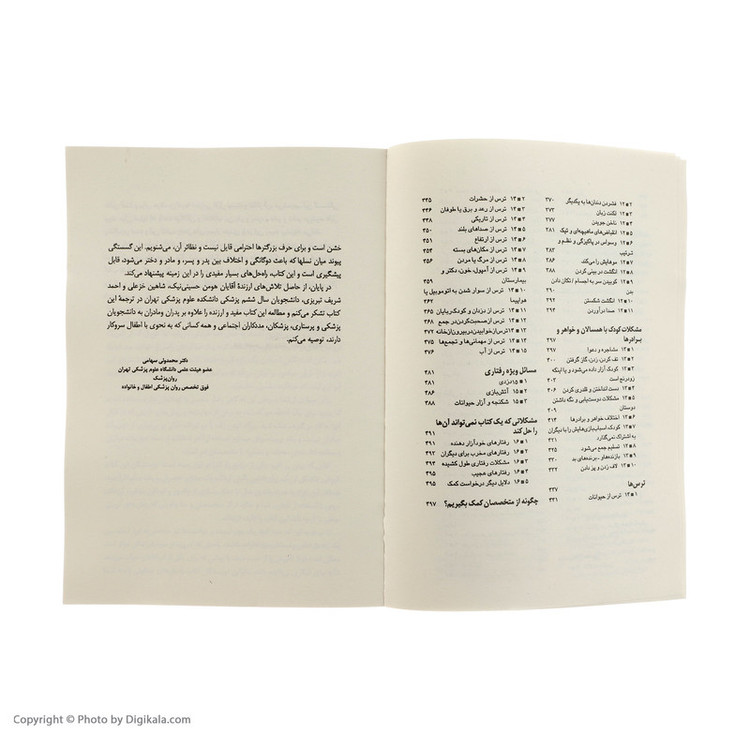 ۲ ■ ۱۲ فشردن دندان‌ها به یکدیگر ۲۷۰
۳ ■ ۱۲ لکنت زبان ۲۷۳
۴ ■ ۱۲ ناخن جویدن ۲۷۷
۵ ■ ۱۲ انقباض‌های ماهیچه‌ای و تیک ۲۸۱
۶ ■ ۱۲ وسواس در پاکیزگی و نظم و
ترتیب ۲۸۴
۷ ■ ۱۲ موهایش را می‌کند
۸ ■ ۱۲ انگشت در بینی کردن ۲۸۸
۹ ■ ۱۲ کوبیدن سر به اجسام / تکان دادن
بدن ۲۹۰
۱۰ ■ ۱۲ انگشت شکستن ۲۹۲
۱۱ ■ ۱۲ صدا درآوردن ۲۹۴
مشکلات کودک با همسالان و خواهر و
برادرها ۲۹۷
۱ ■ ۱۳ مشاجره و دعوا ۲۹۷
۲ ■ ۱۳ تف کردن، زدن، گاز گرفتن ۳۰۰
۳ ■ ۱۳ کودک آزار داده می‌شود و یا اینکه
زودرنج است ۳۰۳
۴ ■ ۱۳ دست انداختن و قلدری کردن ۳۰۶
۵ ■ ۱۳ مشکلات دوست‌یابی و نگه داشتن
دوستان ۳۰۹
۶ ■ ۱۳ اختلاف خواهر و برادرها ۳۱۳
۷ ■ ۱۳ کودک اسباب‌بازی‌هایش را با دیگران
به اشتراک نمی‌گذارد ۳۲۱
۸ ■ ۱۳ تسلیم جمع می‌شود ۳۲۵
۹ ■ ۱۳ بازنده‌ها و ـ برنده‌های بد ۳۳۰
۱۰ ■ ۱۳ لاف زدن و پز دادن ۳۳۲
ترس‌ها ۳۳۷
۱ ■ ۱۴ ترس از حیوانات ۳۴۱
۲ ■ ۱۴ ترس از حشرات ۳۴۵
۳ ■ ۱۴ ترس از رعد و برق یا طوفان ۳۴۶
۴ ■ ۱۴ ترس از تاریکی
۵ ■ ۱۴ ترس از صداهای بلند ۳۵۰
۶ ■ ۱۴ ترس از ارتفاع ۳۵۱
۷ ■ ۱۴ ترس از مکان‌های بسته
۸ ■ ۱۴ ترس از مرگ یا مردن ۳۵۶
۹ ■ ۱۴ ترس از آمپول، خون، دکتر و
بیمارستان ۳۵۹
۱۰ ■ ۱۴ ترس از سوار شدن به اتوموبیل یا
هواپیما ۳۶۲
۱۱ ■ ۱۴ ترس از دزدان و کودک‌ربایان ۳۶۵
۱۲ ■ ۱۴ ترس از صحبت‌کردن در جمع ۳۶۸
۱۳ ■ ۱۴ ترس از خوابیدن بیرون از خانه ۳۷۲
۱۴ ■ ۱۴ ترس از مهمانی‌ها و تجمع‌ها ۳۷۵
۱۵ ■ ۱۴ ترس از آب ۳۷۶
مسائل ویژه رفتاری ۳۸۱
۱ ■ ۱۵ دزدی ۳۸۱
۲ ■ ۱۵ آتش‌بازی ۳۸۶
۳ ■ ۱۵ شکنجه و آزار حیوانات ۳۸۸
مشکلاتی که یک کتاب نمی‌تواند آن‌ها
را حل کند ۳۹۱
۱ ■ ۱۶ رفتارهای خودآزار دهنده ۳۹۱
۲ ■ ۱۶ رفتارهای مخرب برای دیگران ۳۹۲
۳ ■ ۱۶ مشکلات رفتاری طول کشیده ۳۹۴
۴ ■ ۱۶ رفتارهای عجیب ۳۹۵
۵ ■ ۱۶ دلایل دیگر درخواست کمک ۳۹۵
چگونه از متخصصان کمک بگیریم؟ ۳۹۷
خشن است و برای حرف بزرگترها احترامی قایل نیست و نظائر آن، می‌شنویم. این گسستگی
پیوند میان نسلها که باعث دوگانگی و اختلاف بین پدر و پسر، و مادر و دختر می‌شود، قابل
پیشگیری است و این کتاب، راه‌حل‌های بسیار مفیدی را در این زمینه پیشنهاد می‌کند.
در پایان، از حاصل تلاش‌های ارزندهٔ آقایان هومن حسینی‌نیک، شاهین خزعلی و احمد
شریف تبریزی، دانشجویان سال ششم پزشکی دانشکده علوم پزشکی تهران در ترجمهٔ این
کتاب تشکر می‌کنم و مطالعه این کتاب مفید و ارزنده را علاوه بر پدران ومادران به دانشجویان
پزشکی و پرستاری، پزشکان، مددکاران اجتماعی و همه کسانی که به نحوی با اطفال سروکار
دارند، توصیه می‌کنم.
دکتر محمدولی سهامی
عضو هیئت علمی دانشگاه علوم پزشکی تهران
روان‌پزشک
فوق تخصص روان پزشکی اطفال و خانواده
Copyright © Photo by Digikala.com